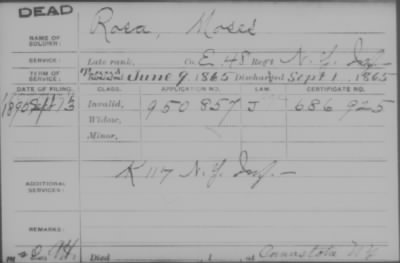 DEAD
NAME OF SOLDIER: Rosa, Moses
SERVICE: Late rank, Co. E, 48 Reg't N.Y. Inf.
TERM OF SERVICE: June 9, 1865 Discharged Sept 1, 1865
DATE OF FILING. CLASS. APPLICATION NO. LAW. CERTIFICATE NO.
1890 Invalid, 950857 J 686925
Widow,
Minor,
ADDITIONAL SERVICES: K 117 N.Y. Inf.
REMARKS:
Died Canastota NY